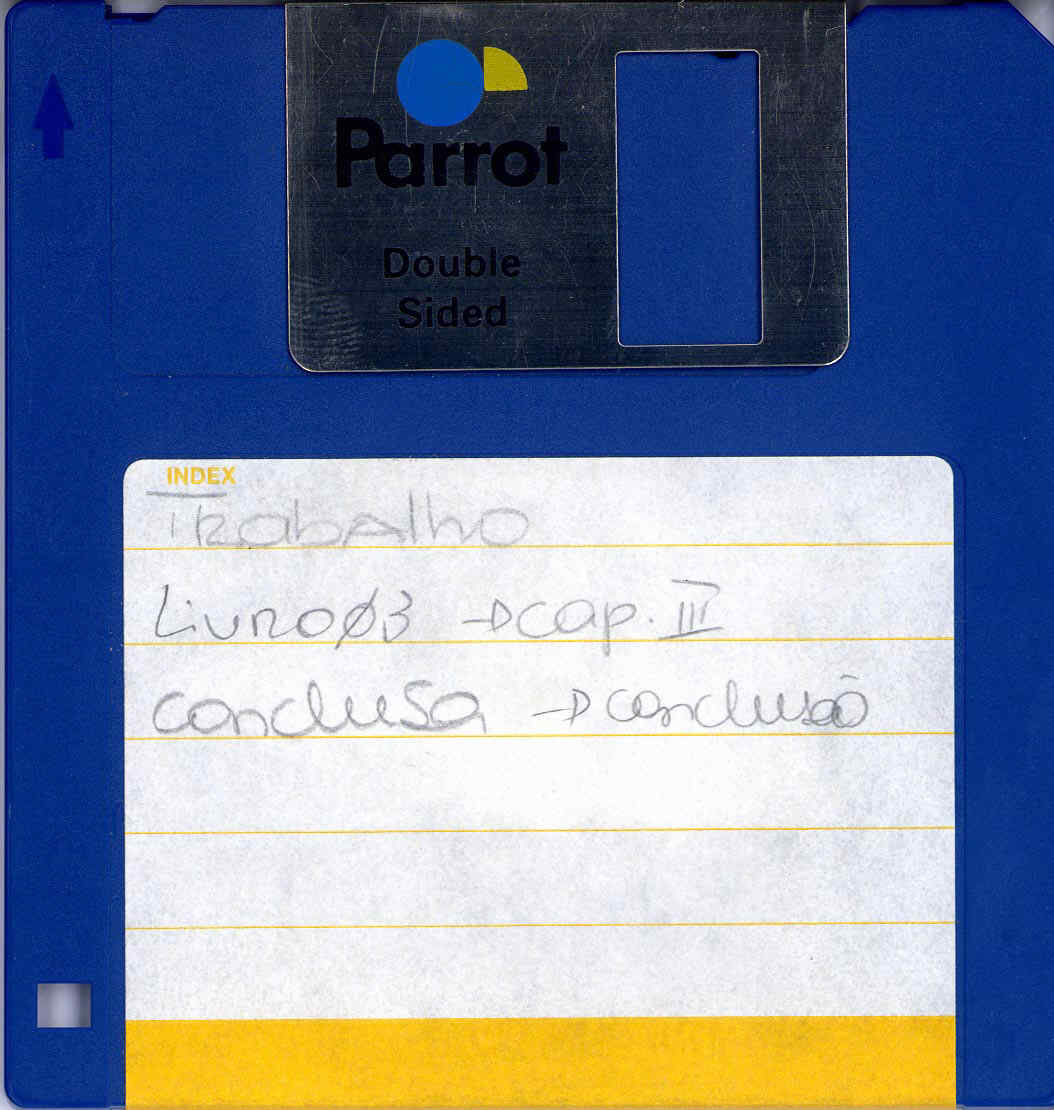 Parrot
Double
Sided
INDEX
Trabalho
Livro03 → cap. III
conclusa → conclusão